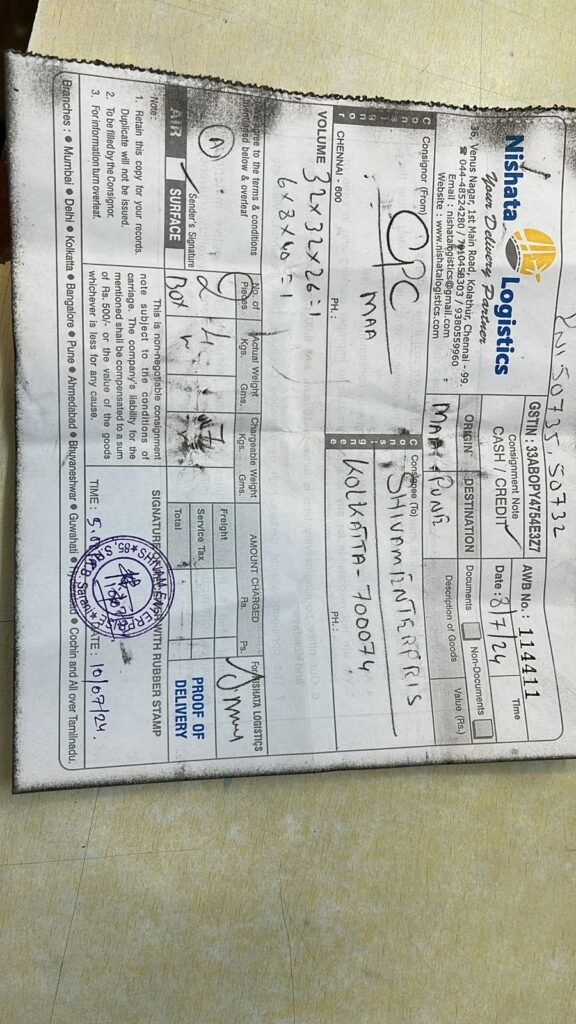 50735, 50732
Nishata Logistics
Your Delivery Partner
Venus Nagar, 1st Main Road, Kolathur, Chennai - 99.
☎ 044-48524280 / 9380559960
Email : nishatalogistics@gmail.com
Website : www.nishatalogistics.com
GSTIN : 33ABOPY4754E3Z7
Consignment Note
CASH / CREDIT ✓
AWB No. : 114411
Date : 8/7/24
Time
ORIGIN
DESTINATION
MAA
Documents
Non-Documents
Description of Goods
Value (Rs.)
Consignor (From)
CPC
MAA
CHENNAI - 600
PH. :
Consignee (To)
SHIVAM ENTERPRIS
KOLKATTA - 700074
PH. :
VOLUME 32x32x26=1
6x3x40=1
agree to the terms & conditions
mentioned below & overleaf
Sender's Signature
No. of Pieces
2
BOX
Actual Weight
Kgs. Gms.
Chargeable Weight
Kgs. Gms.
AMOUNT CHARGED
Rs. Ps.
Freight
Service Tax
Total
For NISHATA LOGISTICS
PROOF OF DELIVERY
AIR
✓ SURFACE
Note:
1. Retain this copy for your records.
Duplicate will not be issued.
2. To be filled by the Consignor.
3. For information turn overleaf.
This is non-negotiable consignment
note subject to the conditions of
carriage. The company's liability for the
mentioned shall be compensated to a sum
of Rs. 500/- or the value of the goods
whichever is less for any cause.
WITH RUBBER STAMP
TIME :
DATE : 10/07/24.
Branches : ● Mumbai ● Delhi ● Kolkatta ● Bangalore ● Pune ● Ahmedabad ● Bhuvaneshwar ● Guwahati ● Cochin and All over Tamilnadu.